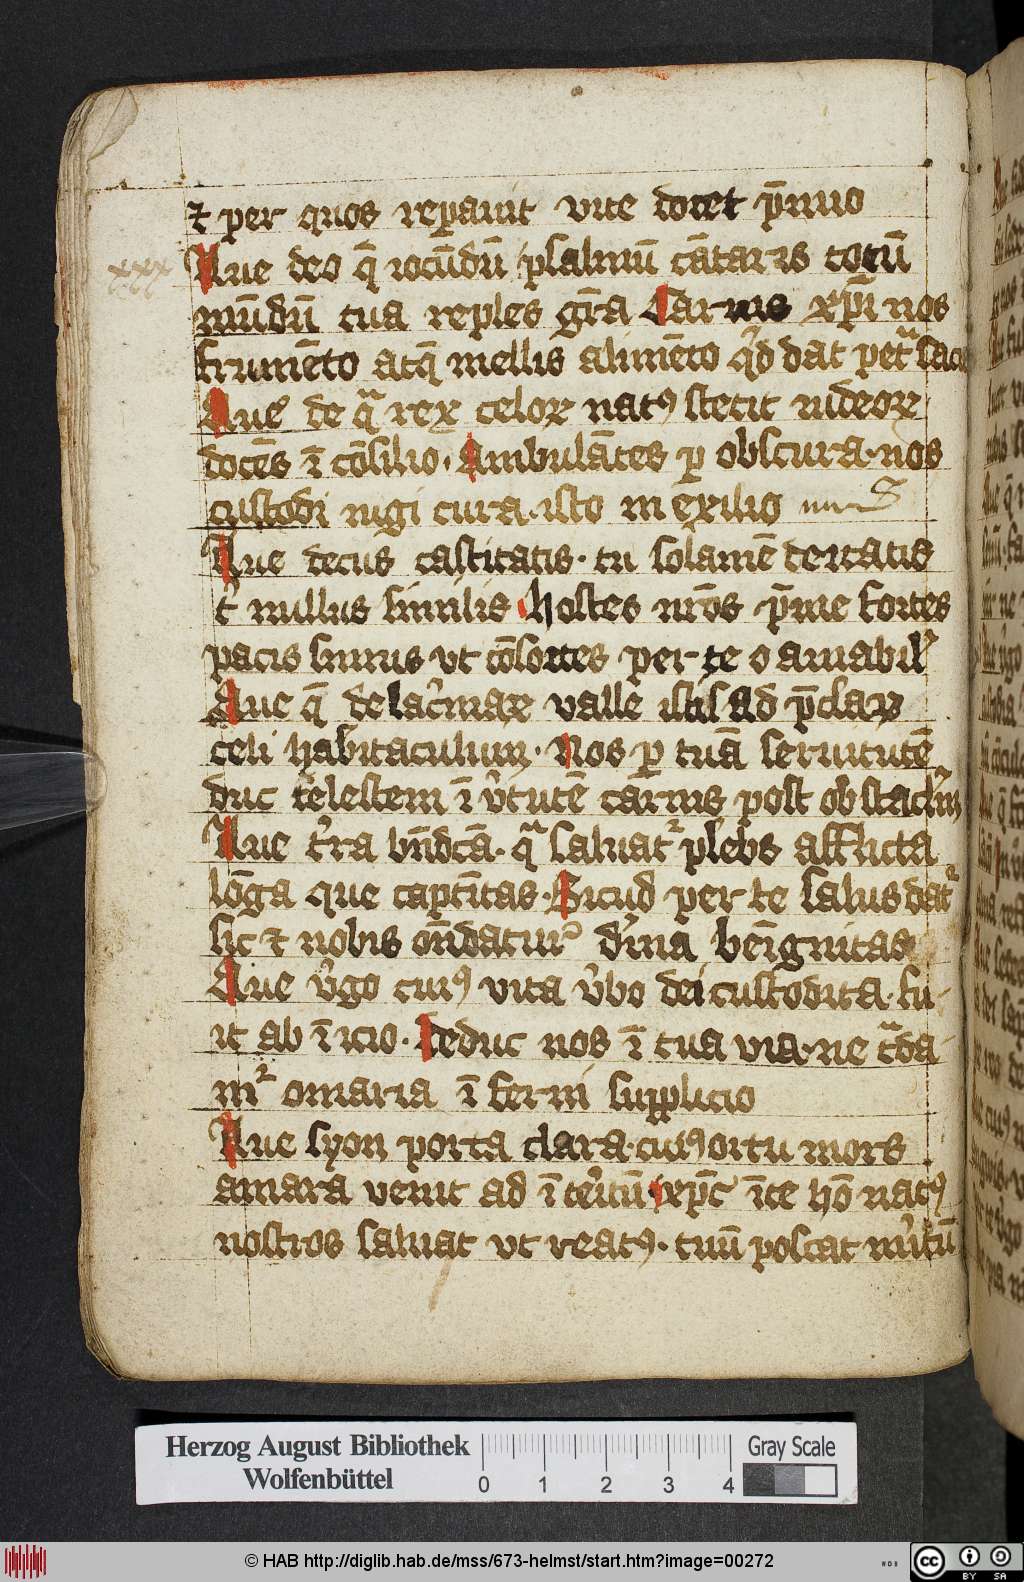 ⁊ per quos reparauit vite docet p̄mio
xxx
Aue deo q̄ iocūdū psalmū cātaris totū
mūdū tua reples gr̄a Carnis xp̄i nos
frumēto atq̄ mellis alimēto qd dat pet̃
Aue de qͣ rex celoꝝ natꝰ stetit iudeoꝝ
docēs ī cōsilio · Ambulātes ꝑ obscura · nos
custodi iugi cura · isto in exilio
Aue decus castitatis · tu solamē deitatis
nullus similis hostes nr̄os p̄me fortes
pacis simus vt cōsortes per te o amabil
Aue q̄ de lac̄maꝝ valle istis ad p̄claꝝ
celi habitaculum · Nos ꝑ tuā seruitutē
duc celestem ī v̓tutē carnis post obstacl̄m
Aue t̓ra bn̄dcā · qͣ saluat̃ plebs afflicta
lōga que captiuitas · Sicud per te salus dat̃
sic ⁊ nobis ōndatur d̓ina benignitas
Aue v̓go cuiꝰ vita v̓bo dei custodita · fu-
it ab īicio · Deduc nos ī tua via · ne tͣda-
m̃ o maria īferni supplicio
Aue syon porta clara · cuiꝰ ortu mors
amara venit ad īteritū · xpc̄ īte hō natꝰ
nostros saluat vt reatꝰ · tuū poscat m̓itū
Herzog August Bibliothek
Wolfenbüttel
0 1 2 3 4
Gray Scale
© HAB http://diglib.hab.de/mss/673-helmst/start.htm?image=00272
WDB
cc BY SA